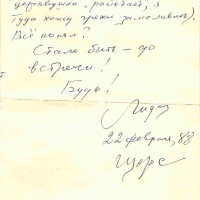 церквушка работает, я
туда хожу грехи замаливать).
Всё понял?
Стало быть – до
встречи!
Будь!
Лидия
22 февраля, 88
Щорс